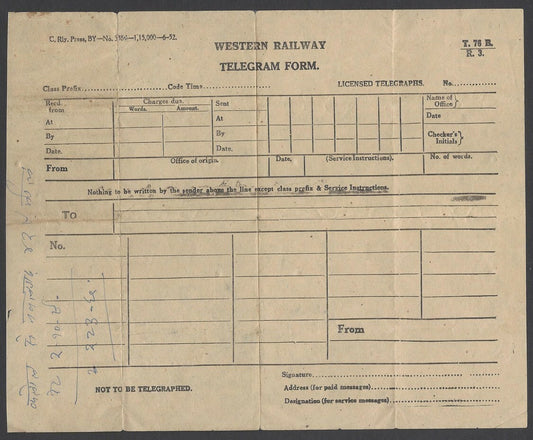 C. Rly. Press, BY—No. 5386—1,15,000—6-52.
T. 76 B.
R. 3.
WESTERN RAILWAY
TELEGRAM FORM.
Class Prefix
Code Time
LICENSED TELEGRAPHS.
No.
Recd. from
At
By
Date.
Charges due.
Words.
Amount.
Sent
At
By
Date.
Name of Office
Date
Checker's Initials
From
Office of origin.
Date.
(Service Instructions).
No. of words.
Nothing to be written by the sender above the line except class prefix & Service Instructions.
To
No.
From
NOT TO BE TELEGRAPHED.
Signature
Address (for paid messages)
Designation (for service messages)